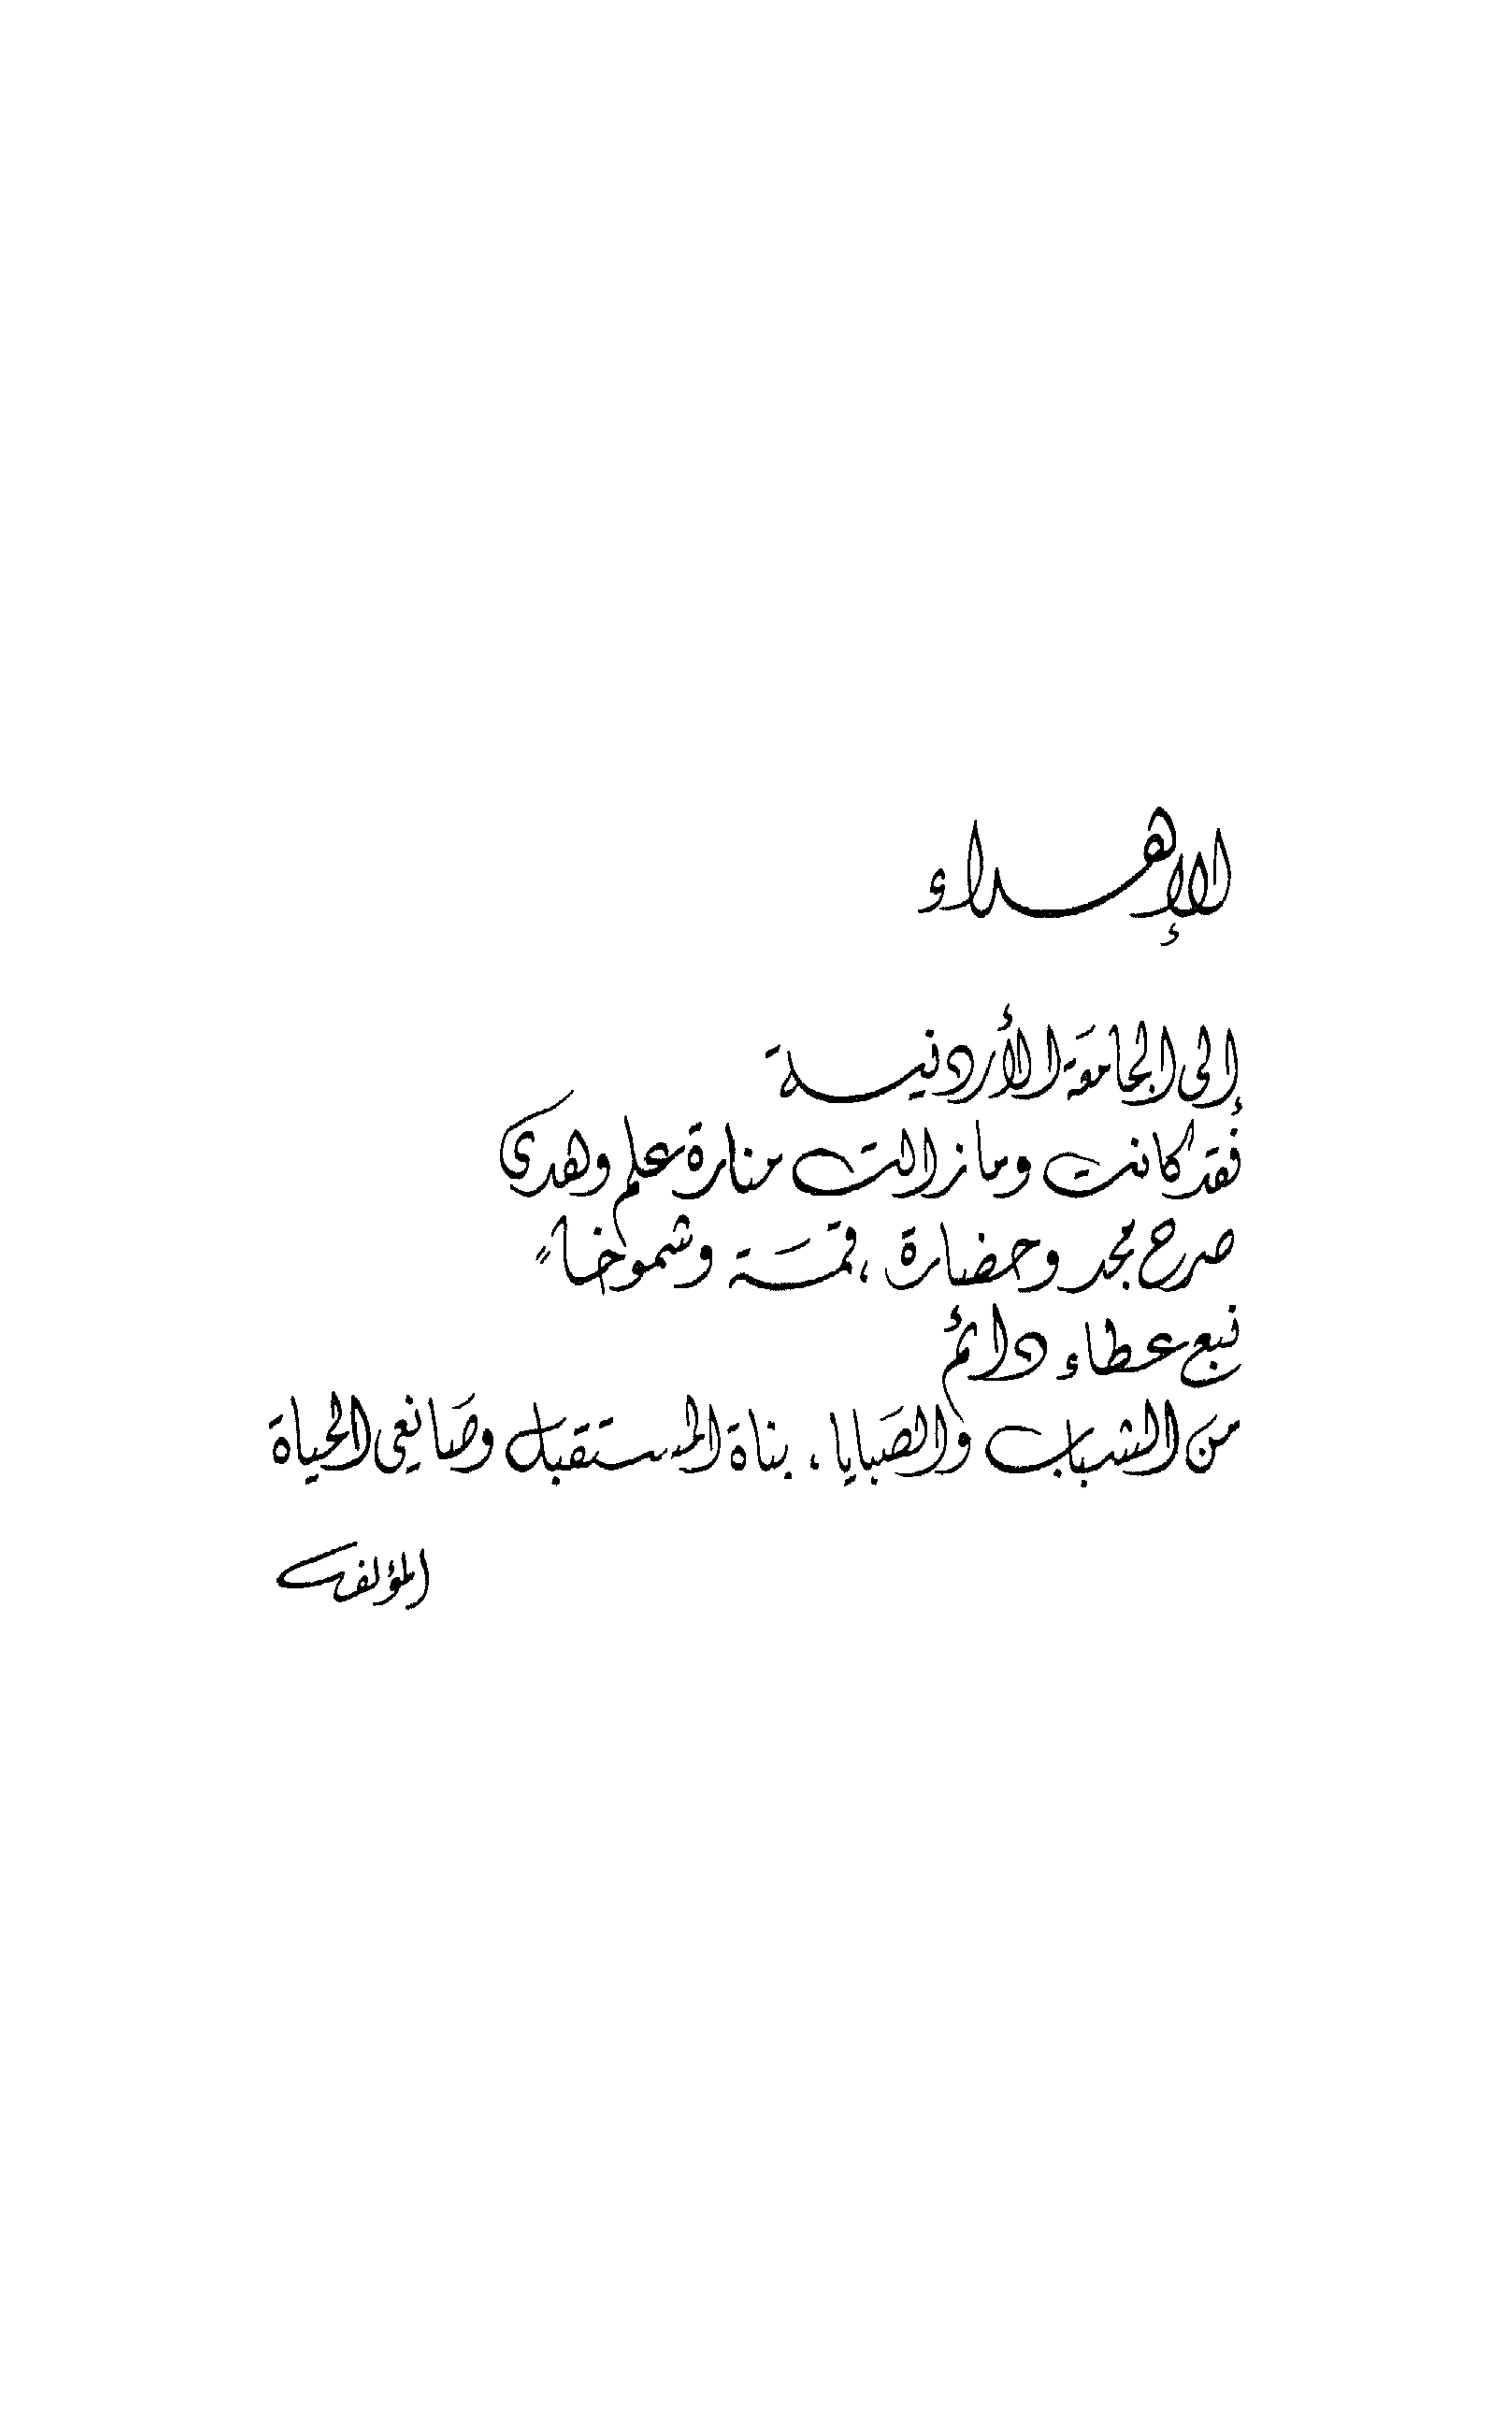 الإهداء
إلى الجامعة الأردنية
فقد كانت وما زالت منارة علم وهدى
صرح مجد وحضارة ، قمة وشموخاً
نبع عطاء دائم
من الشباب والصبايا . بناة المستقبل وصانعي الحياة
المؤلف